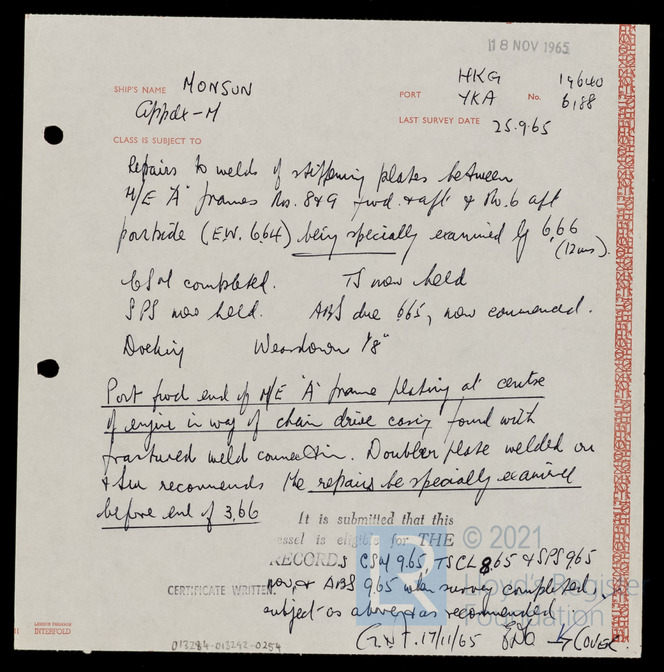 18 NOV 1965
SHIP'S NAME MONSUN
Appdx-M
PORT HKG
YKA
No. 19640
6188
LAST SURVEY DATE 25.9.65
CLASS IS SUBJECT TO
Repairs to welds of stiffening plates between
M/E "A" frames Nos. 8 & 9 fwd. & aft & No. 6 aft
portside (E.W. 6.64) being specially examined by 6,66
(12ms).
CSM completed. TS now held
SPS now held. ABS due 6.65, now commenced.
Docking Weardown 1/8"
Port fwd end of M/E "A" frame plating at centre
of engine in way of chain drive casing found with
fractured weld connection. Doubler plate welded on
& Sur recommends the repairs be specially examined
before end of 3,66
It is submitted that this
essel is eligible for THE
RECORDS CSM 9.65, TSCL 8.65 & SPS 9.65
now, & ABS 9.65 when survey completed,
subject as above & as recommended
CERTIFICATE WRITTEN.
G.N.F. 17/11/65 Cover.
© 2021
Lloyd's Register
Foundation
LR
INTERFOLD
013284-013292-0254